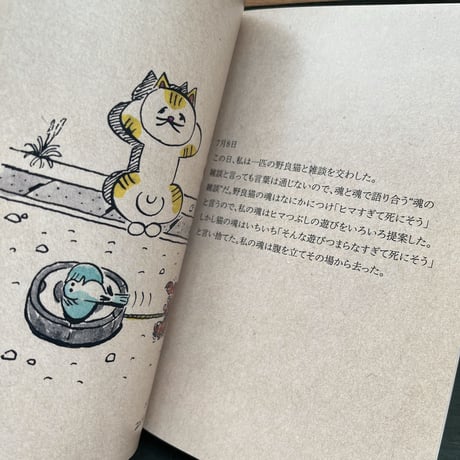 7月8日
この日、私は一匹の野良猫と雑談を交わした。
雑談と言っても言葉は通じないので、魂と魂で語り合う"魂の
雑談"だ。野良猫の魂はなにかにつけ「ヒマすぎて死にそう」
と言うので、私の魂はヒマつぶしの遊びをいろいろ提案した。
しかし猫の魂はいちいち「そんな遊びつまらなすぎて死にそう」
と言い捨てた。私の魂は腹を立てその場から去った。